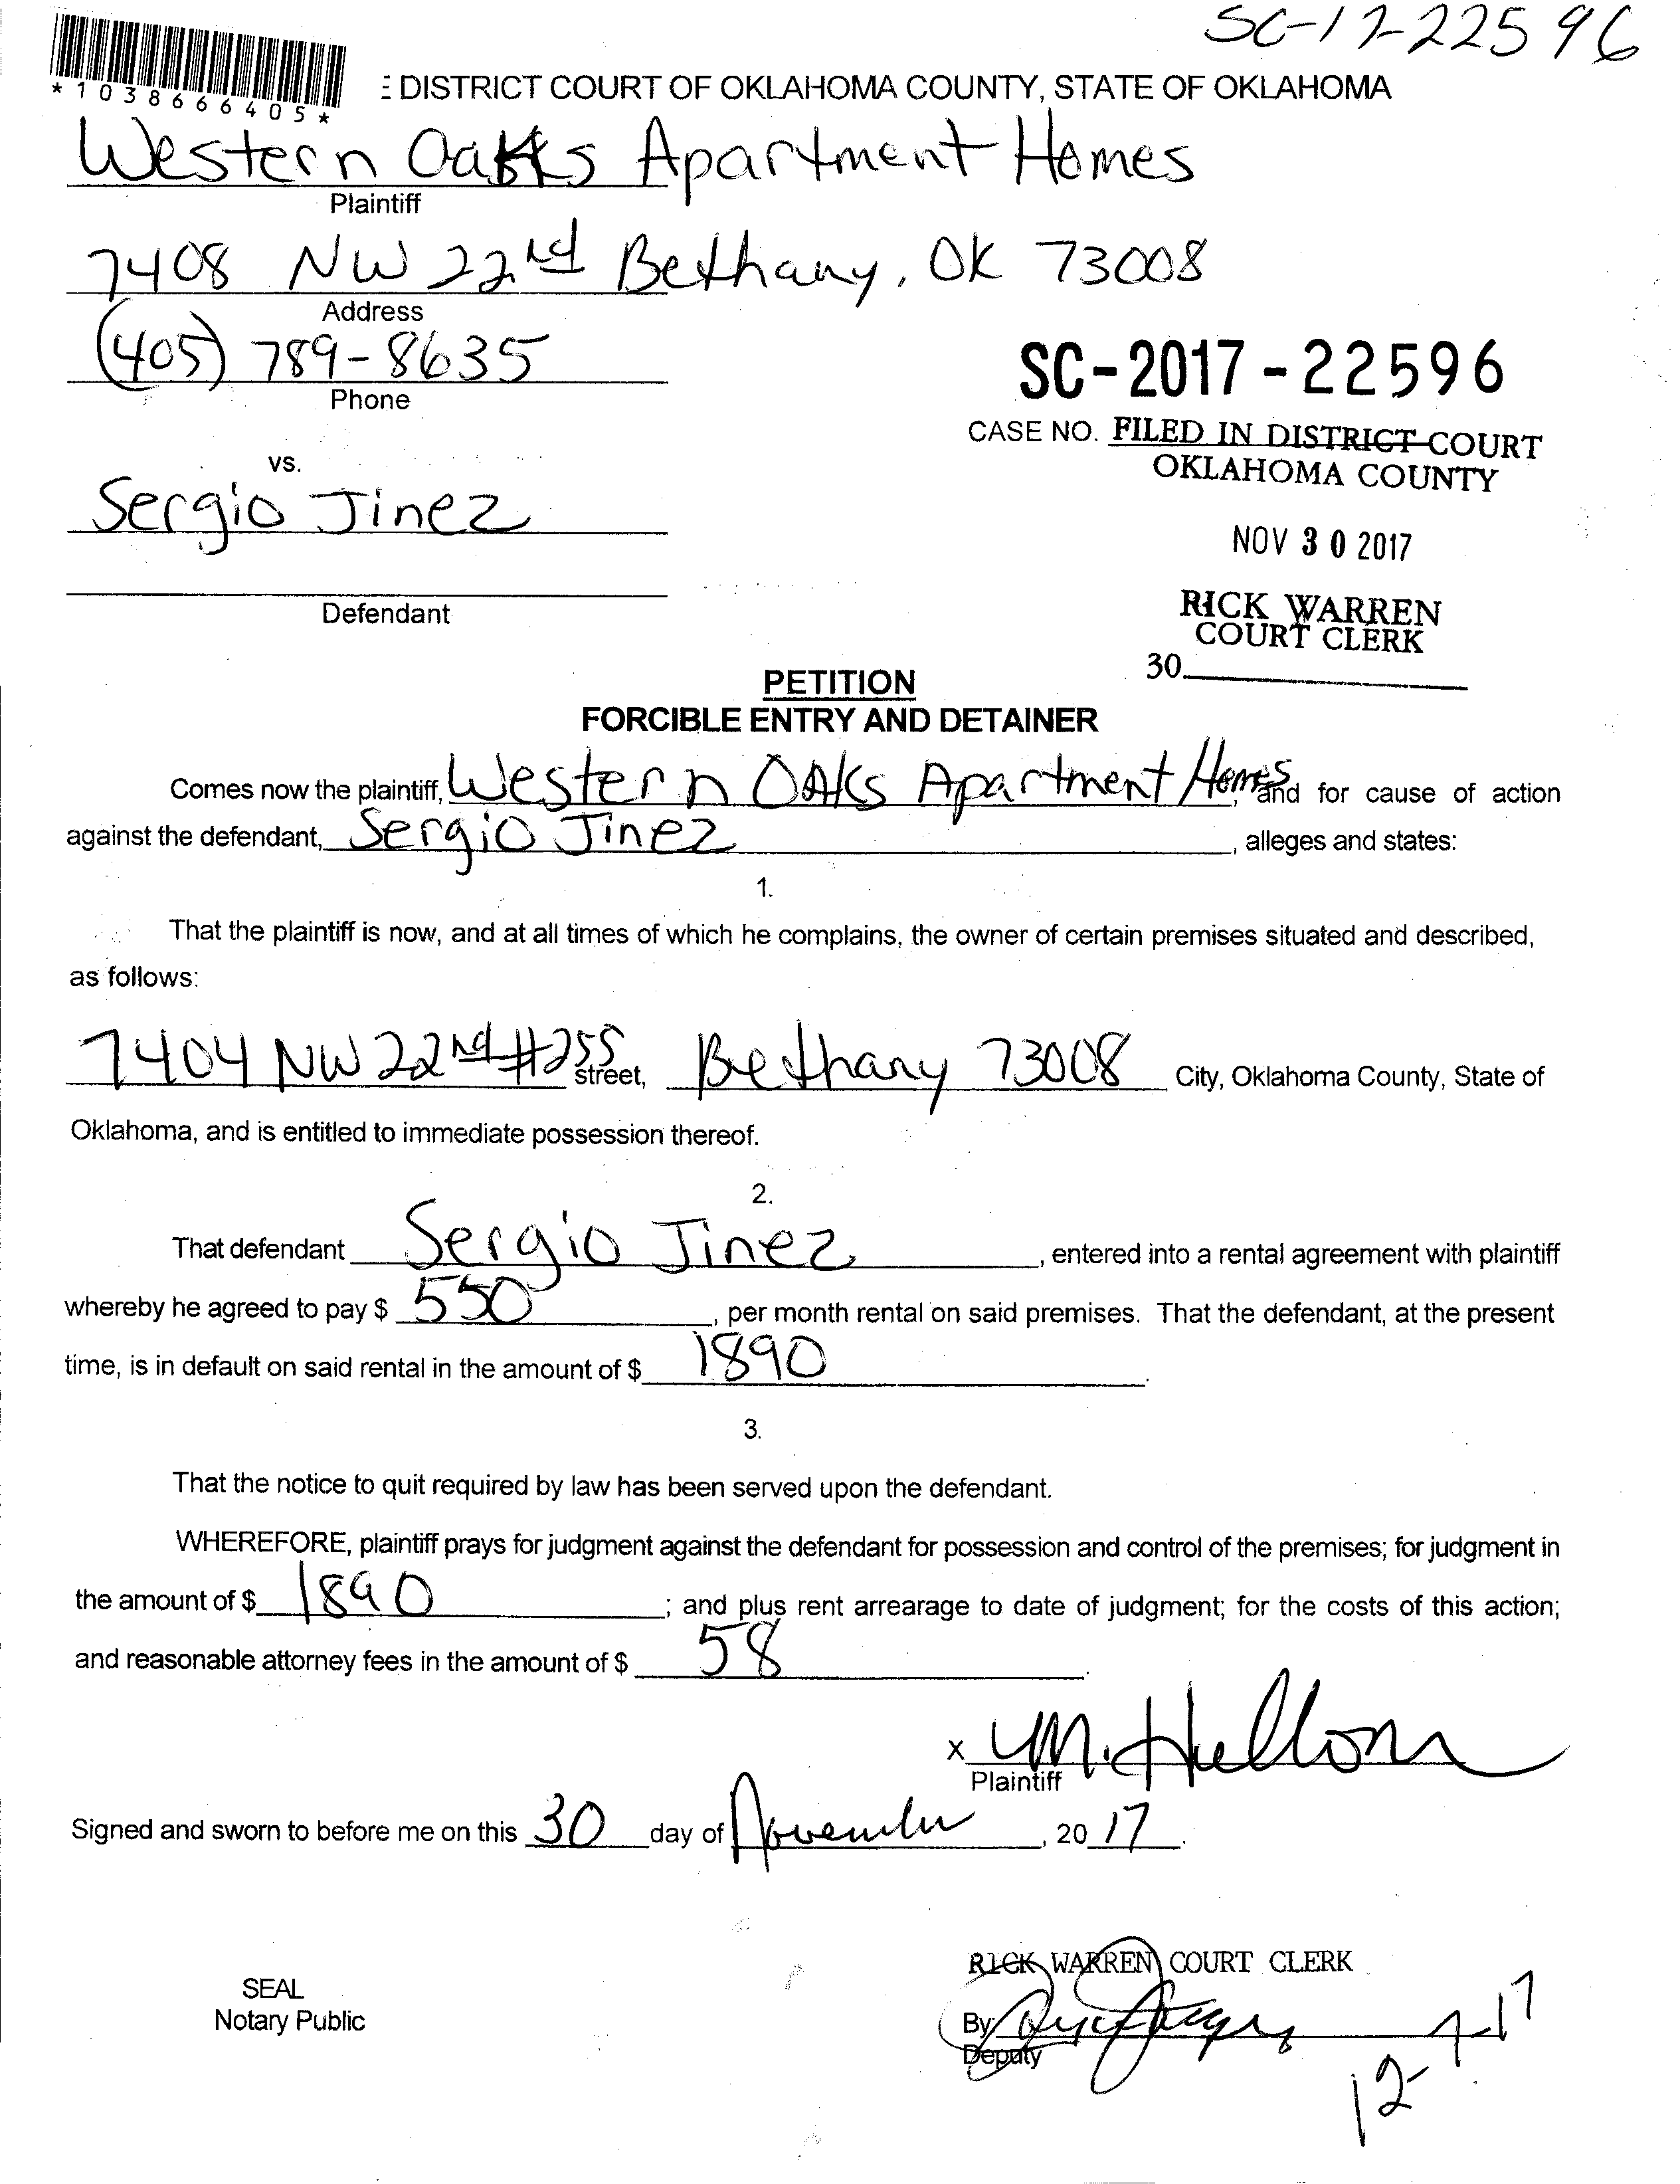 SC-17-22596
*1038666405*
E DISTRICT COURT OF OKLAHOMA COUNTY, STATE OF OKLAHOMA
Western Oaks Apartment Homes
Plaintiff
7408 NW 22nd Bethany, OK 73008
Address
(405) 789-8635
Phone
SC-2017-22596
CASE NO. FILED IN DISTRICT COURT
OKLAHOMA COUNTY
vs.
Sergio Jinez
NOV 30 2017
Defendant
RICK WARREN
COURT CLERK
30
PETITION
FORCIBLE ENTRY AND DETAINER
Comes now the plaintiff, Western OAks Apartment Homes, and for cause of action
against the defendant, Sergio Jinez, alleges and states:
1.
That the plaintiff is now, and at all times of which he complains, the owner of certain premises situated and described,
as follows:
7404 NW 22nd #255 street, Bethany 73008 City, Oklahoma County, State of
Oklahoma, and is entitled to immediate possession thereof.
2.
That defendant Sergio Jinez, entered into a rental agreement with plaintiff
whereby he agreed to pay $ 550, per month rental on said premises. That the defendant, at the present
time, is in default on said rental in the amount of $ 1890.
3.
That the notice to quit required by law has been served upon the defendant.
WHEREFORE, plaintiff prays for judgment against the defendant for possession and control of the premises; for judgment in
the amount of $ 1890; and plus rent arrearage to date of judgment; for the costs of this action;
and reasonable attorney fees in the amount of $ 58.
x M. Hellom
Plaintiff
Signed and sworn to before me on this 30 day of November, 2017.
RICK WARREN COURT CLERK
SEAL
Notary Public
By
Deputy
12-7-17